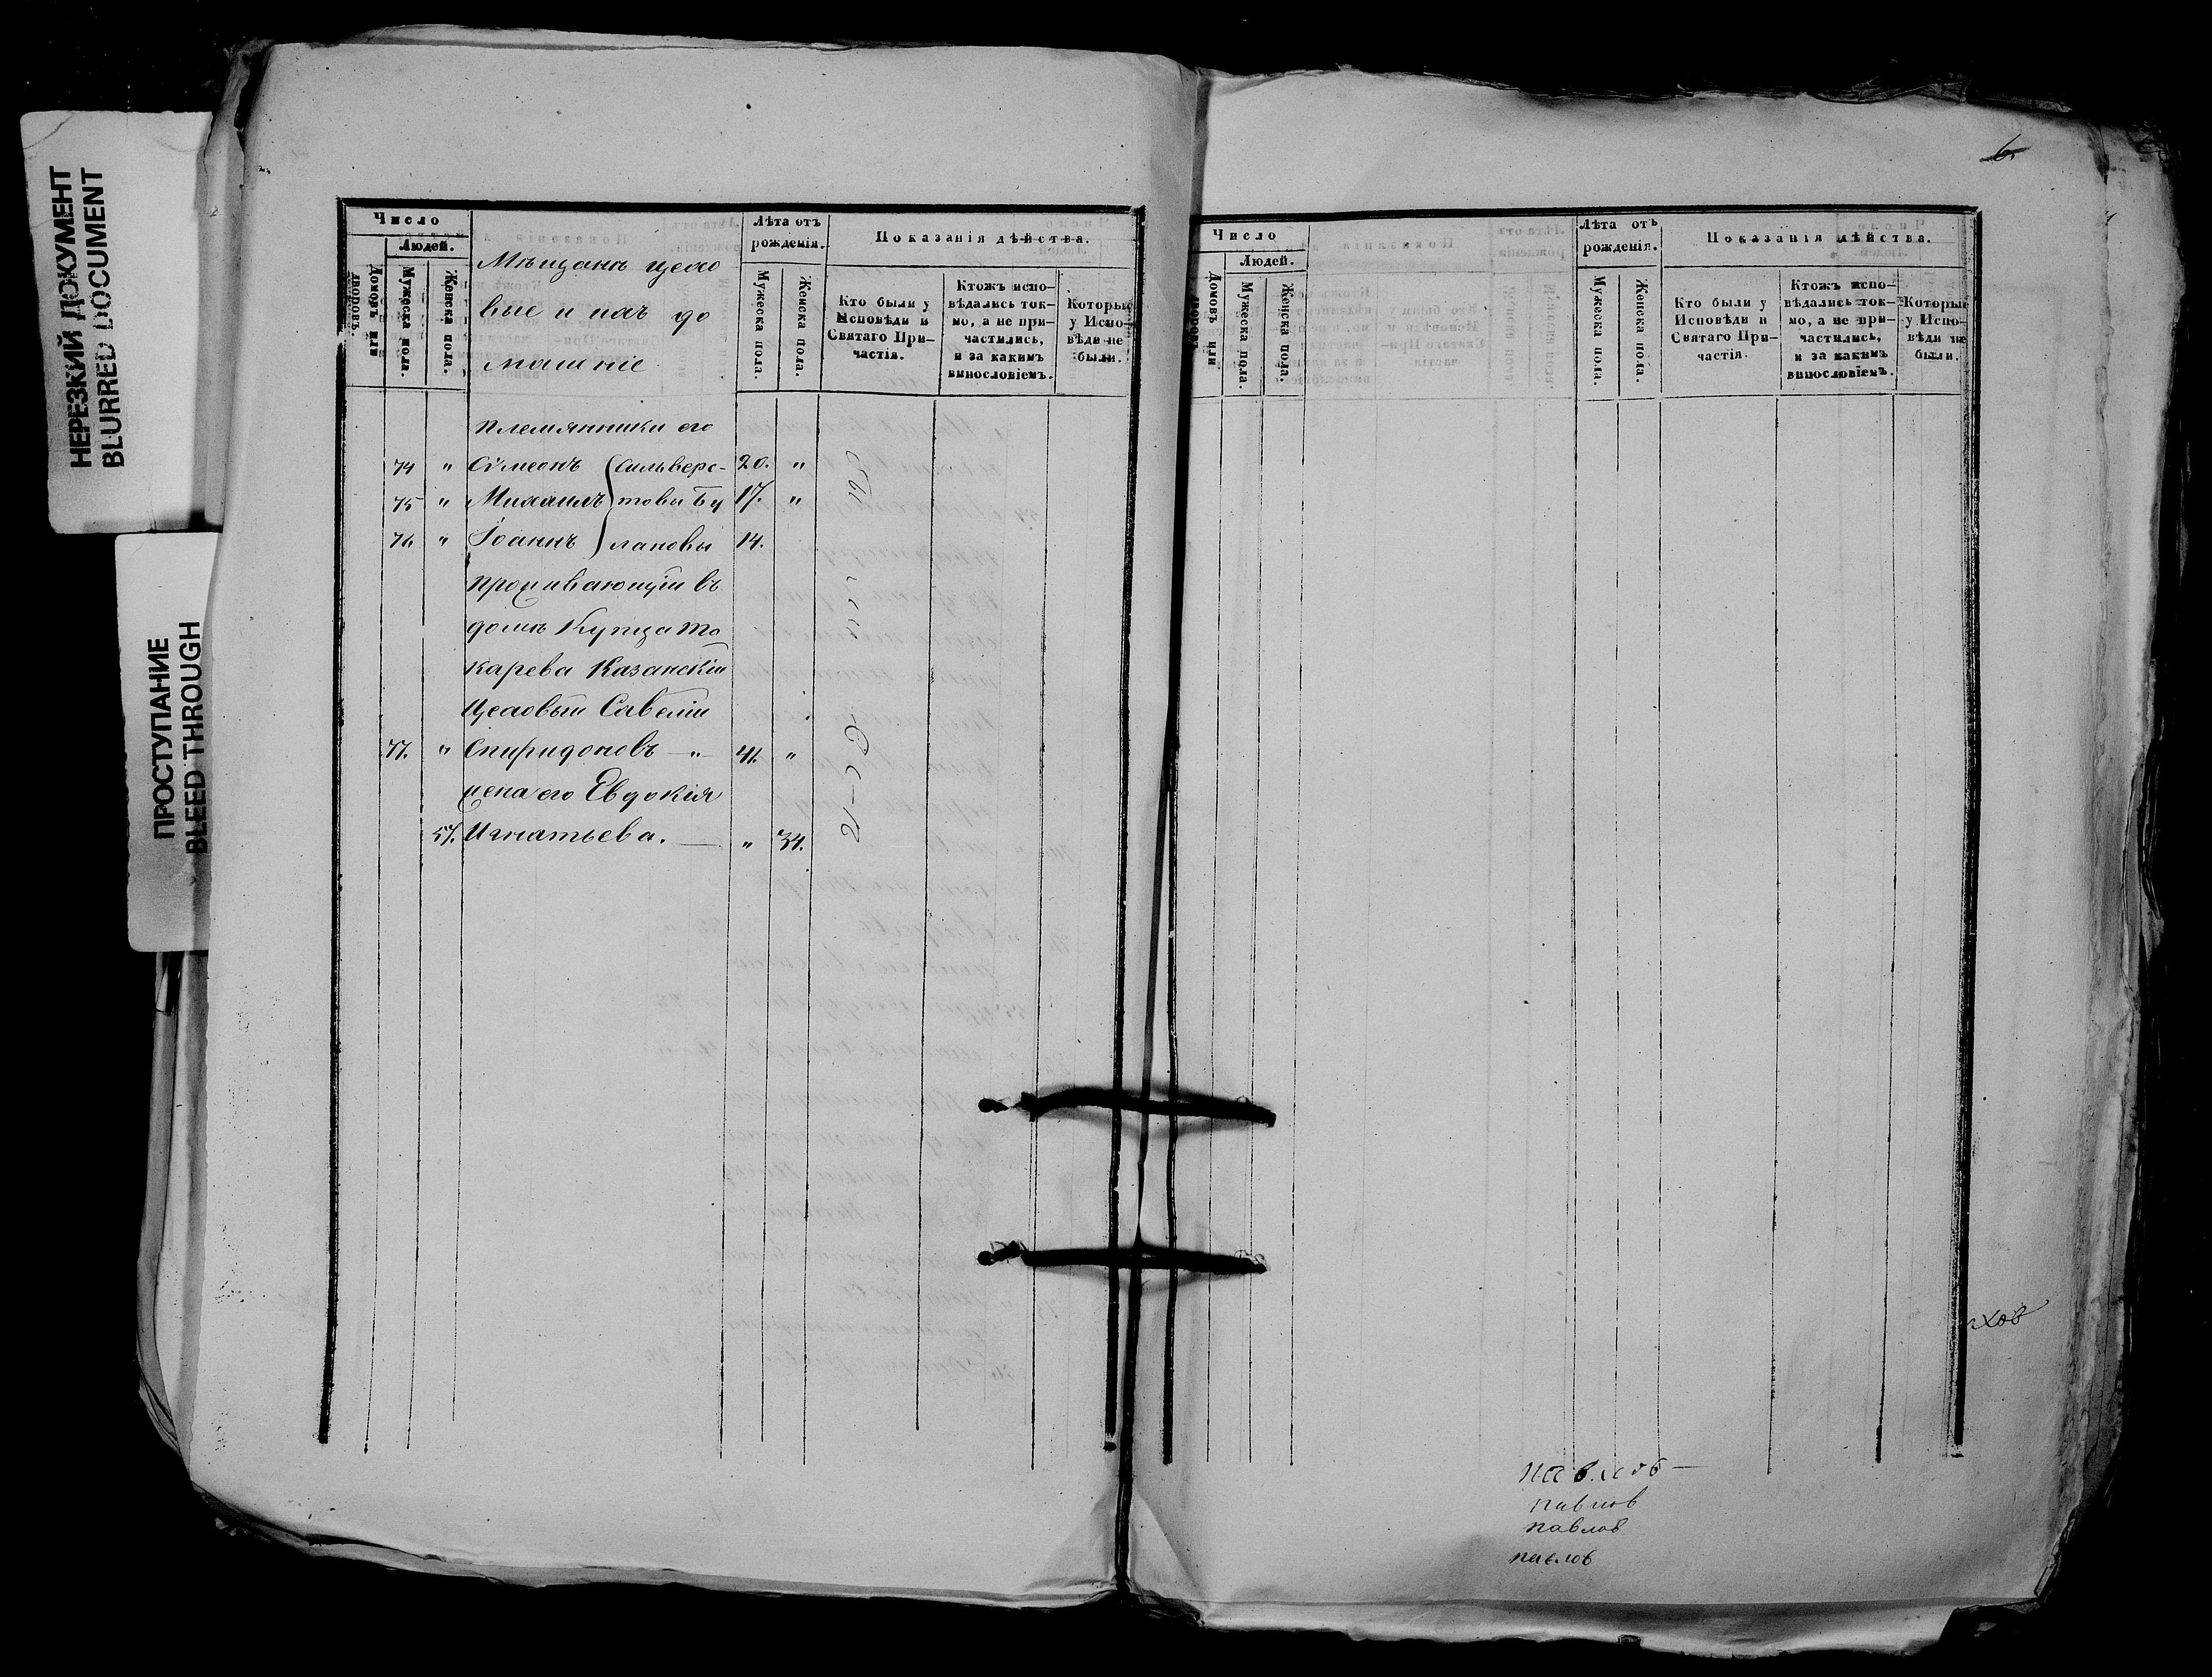 НЕРЕЗКИЙ ДОКУМЕНТ
BLURRED DOCUMENT
ПРОСТУПАНИЕ
BLEED THROUGH
Число
Людей.
Домовъ или дворовъ.
Мужеска пола.
Женска пола.
Мѣщане цехо
вые и ихъ до
машніе
Лѣта отъ рожденія.
Мужеска пола.
Женска пола.
Показанія дѣйства.
Кто были у Исповѣди и Святаго При-частія.
Ктожъ испо-вѣдались ток-мо, а не при-частились, и за какимъ винословіемъ.
Которые у Испо-вѣди не были.
племянники его
74 " Сѵмеонъ Сильверс- 20. "
75 " Михаилъ товы Бу 17. "
76 " Іоаннъ лановы 14.
Проживающій въ
домѣ Купца То
карева Казанскій
Цеховый Савелій
77. " Спиридоновъ — " 41. "
жена его Евдокія
57. Игнатьева. — " 34.
6.
Число
Людей.
Домовъ или дворовъ.
Мужеска пола.
Женска пола.
Лѣта отъ рожденія.
Мужеска пола.
Женска пола.
Показанія дѣйства.
Кто были у Исповѣди и Святаго При-частія.
Ктожъ испо-вѣдались ток-мо, а не при-частились, и за какимъ винословіемъ.
Которые у Испо-вѣди не были.
Павлов —
павлов
павлов
павлов